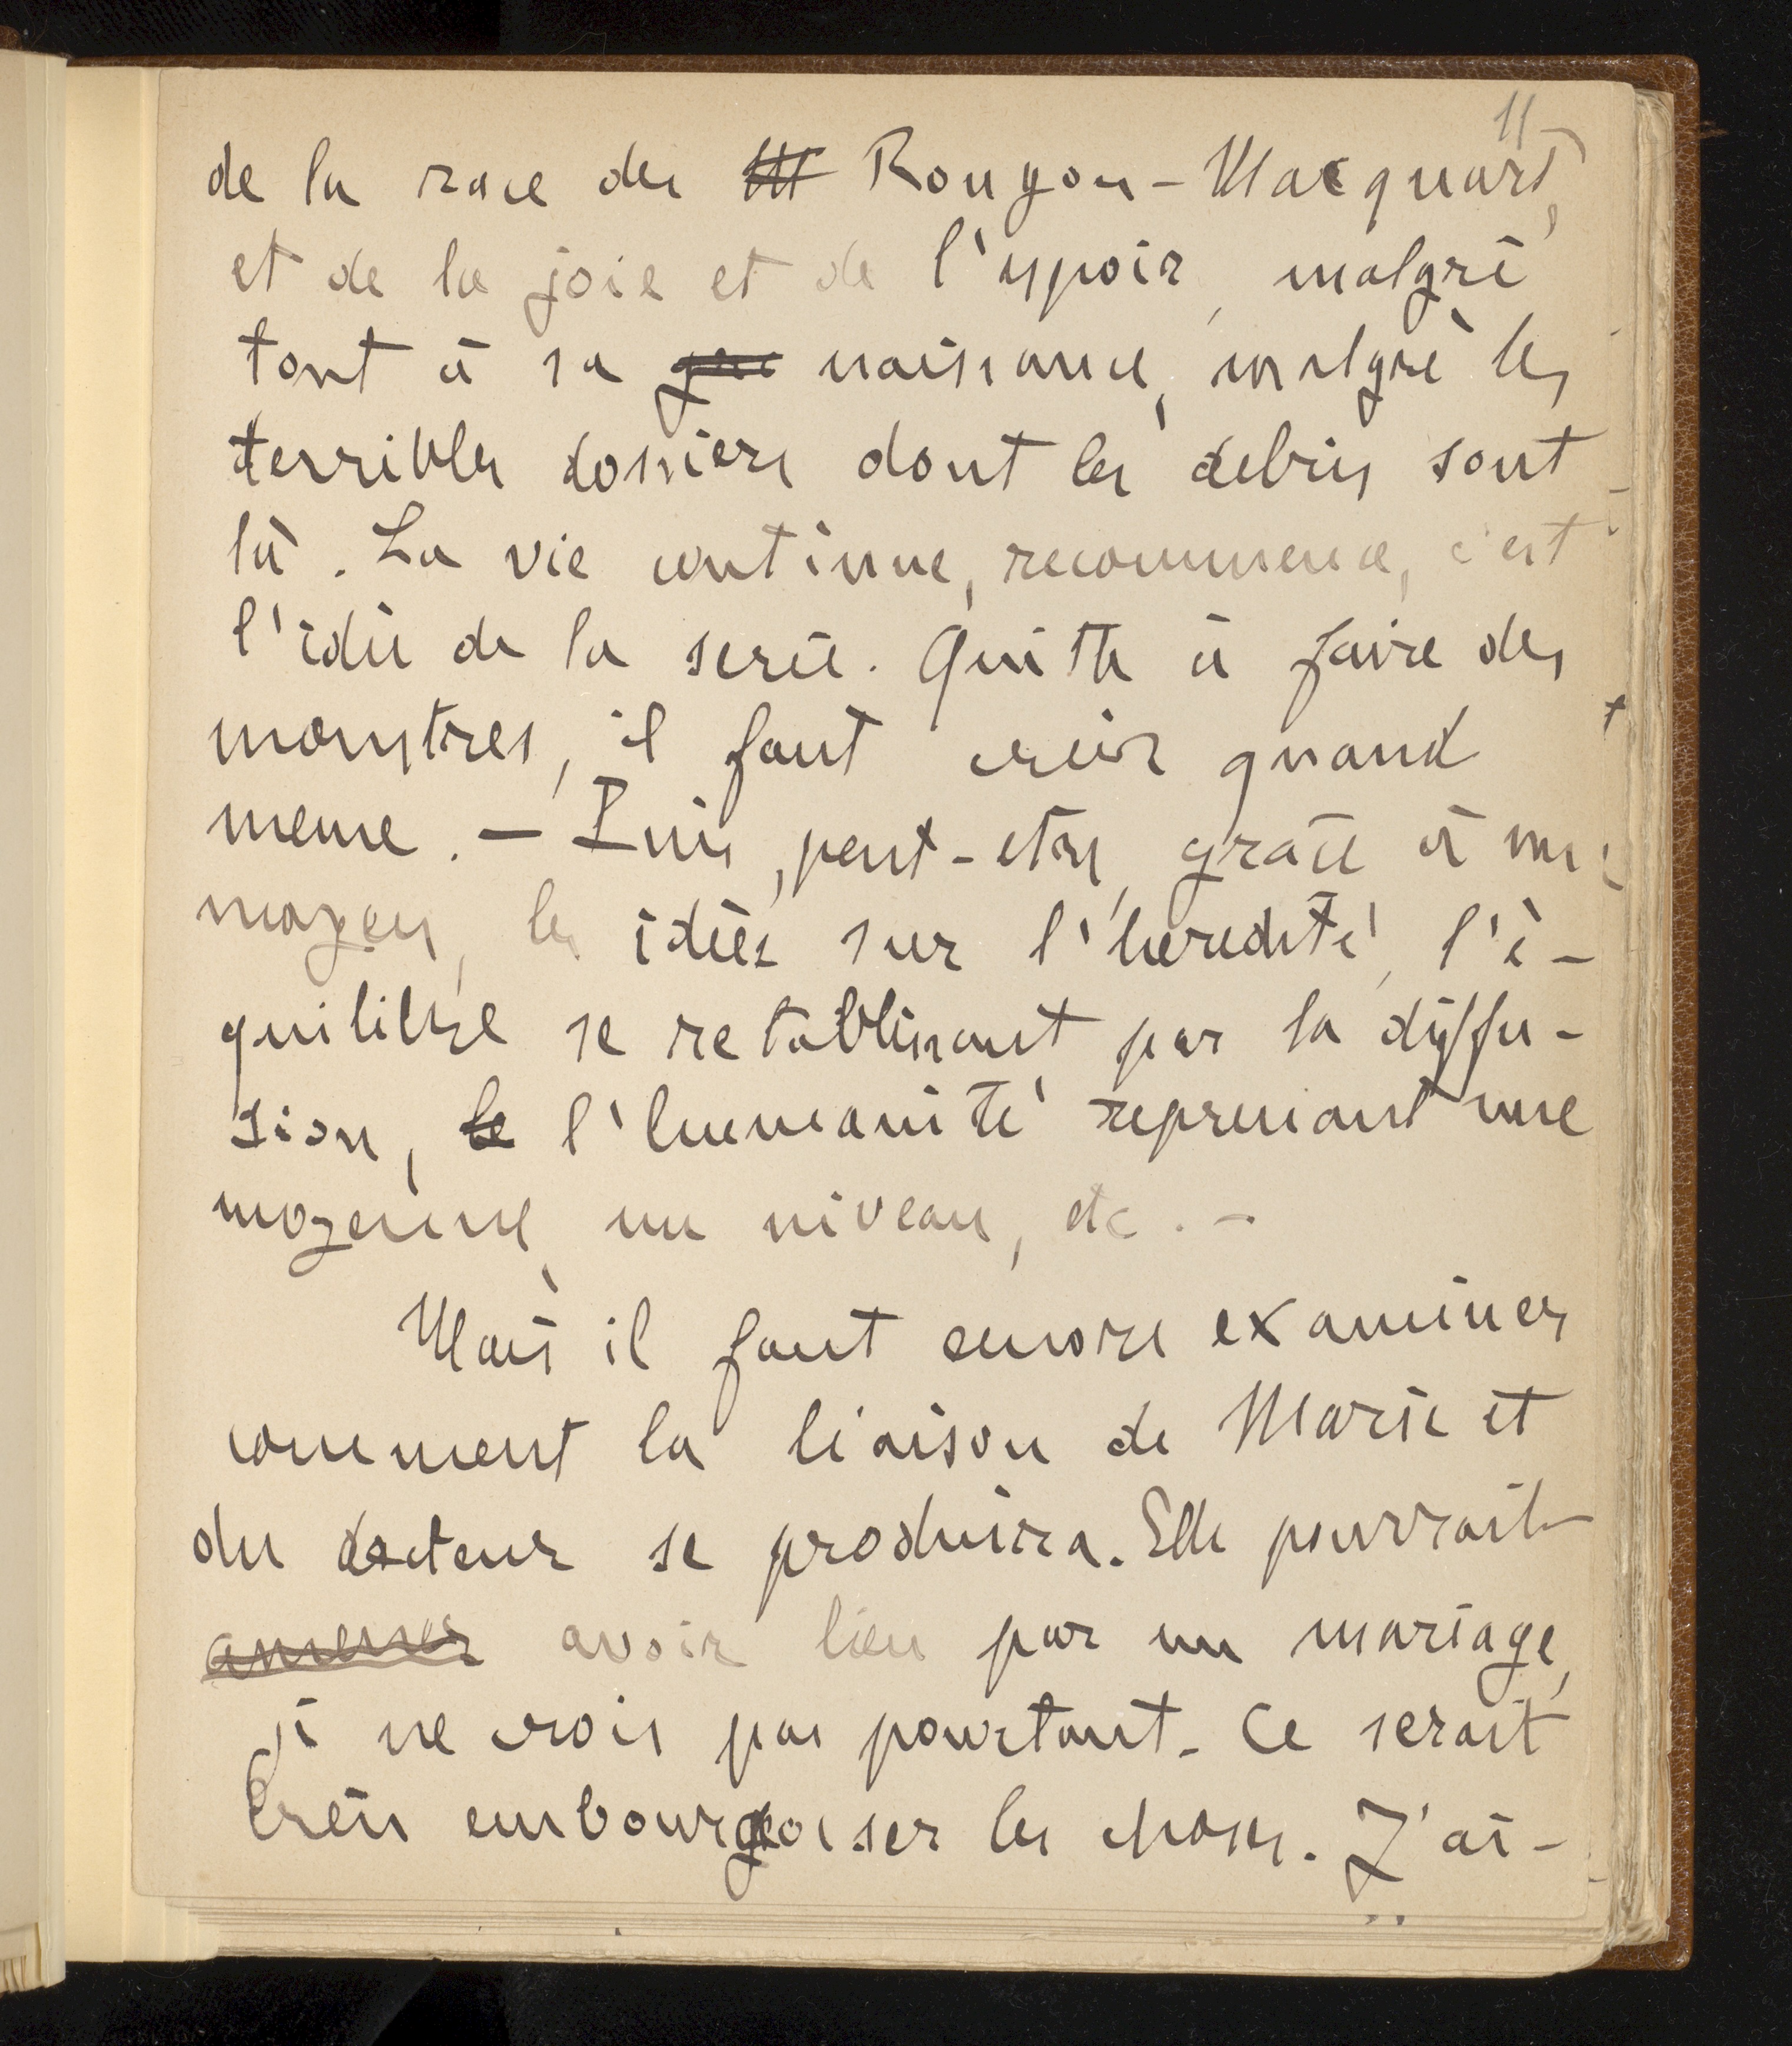 11
de la race des M Rougon-Macquart,
et de la joie et de l'espoir, malgré
tout à sa naissance, malgré les
terribles dossiers dont les debris sont
là. La vie continue, recommence, c'est
l'idée de la serie. Quitte à faire des
monstres, il faut créer quand
meme. — Puis, peut-etre, grâce à un
moyen, les idées sur l'heredité, l'é-
quilibre se retablissant par la diffu-
sion, le l'humanité reprenant une
moyenne, un niveau, etc. —
Mais il faut encore examiner
comment la liaison de Marie et
du docteur se produira. Elle pourrait
amener avoir lieu par un mariage,
je ne crois pas pourtant. Ce serait
bien embourgeoiser les choses. J'ai-